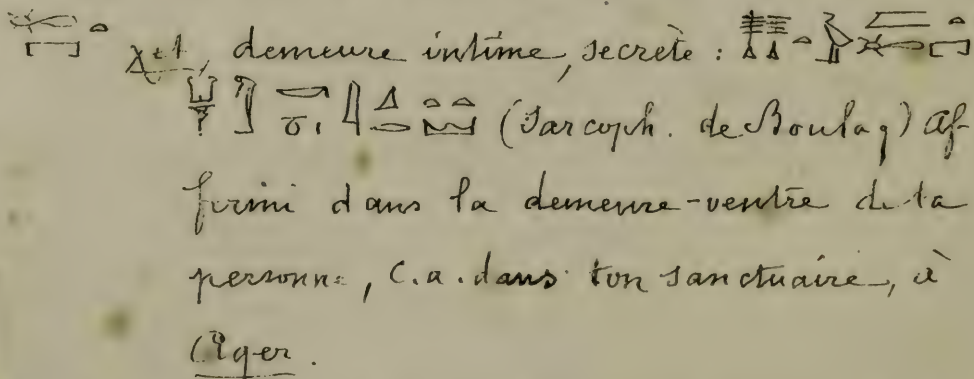 demeure intime, secrète :
(Sarcoph. de Boulaq) Af-
fermi dans la demeure-ventre de ta
personne, c. a. dans ton sanctuaire, à
Ager.